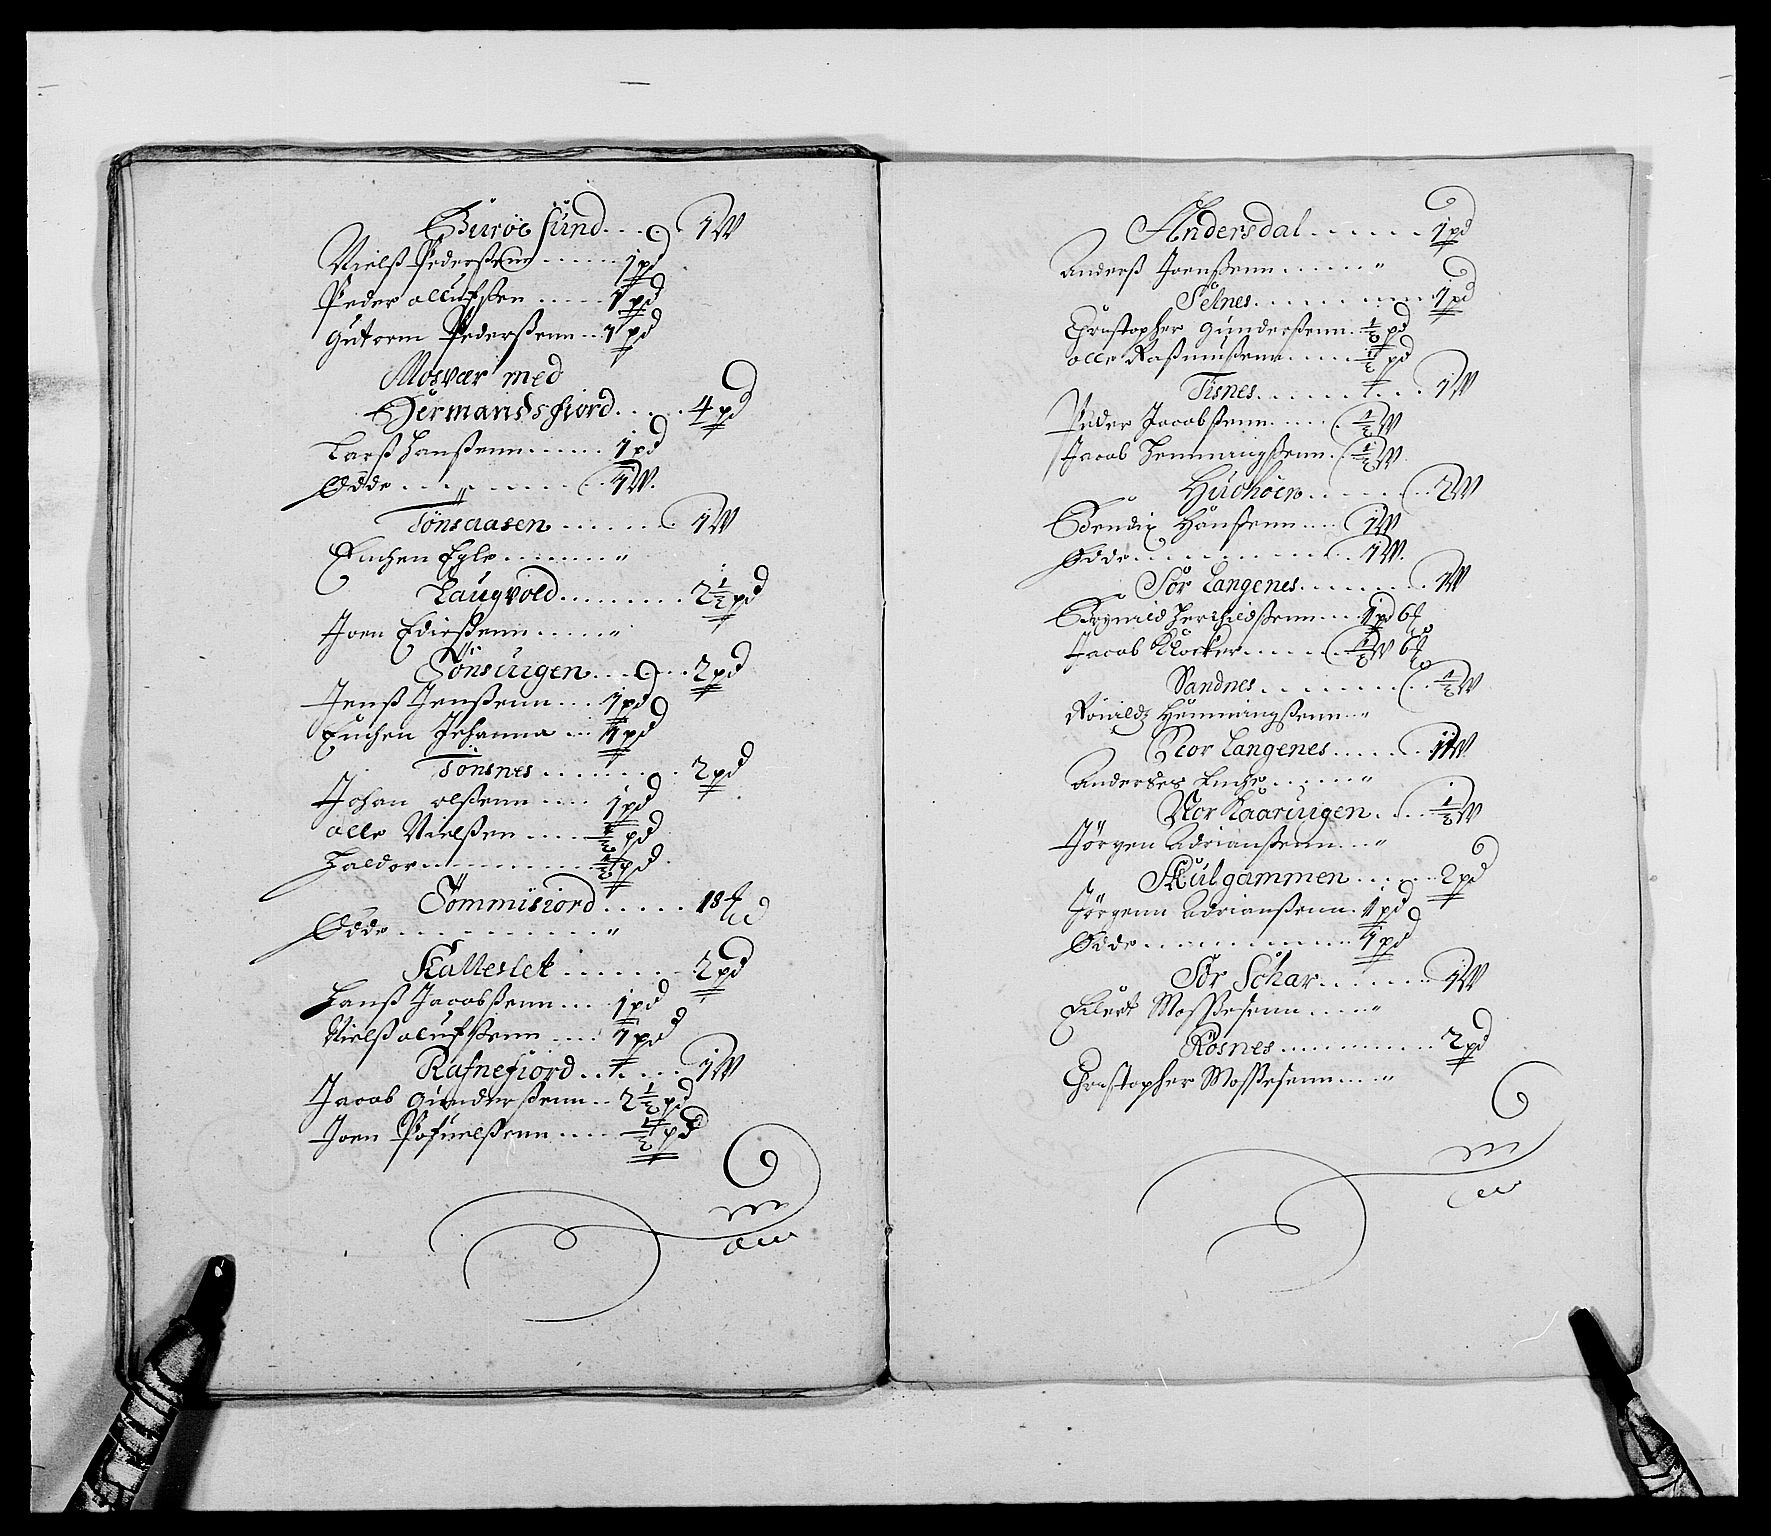 Buröe Sund . . . 1 W
Nielß Pederßenn . . . . . . 1 pd
Peder olluftßen . . . . . 1 pd
Gutorm Pederßenn . . 1 pd
Mosvær med
Hermandsfiord . . . . . 4 pd
Larß Hanßenn . . . . . . 1 pd
Øddе . . . . . . . . . . 1 W.
Tönsaasen . . . . . . . 1 W
Enchen Egle . . . . . . . . "
Laugvold . . . . . . . . . 2½ pd
Joen Edisßenn . . . . . "
Tönsuigen . . . . . . 2 pd
Jenß Jenßenn . . . 1 pd
Enchen Johanna . . . 1 pd
Tönsnes . . . . . . . . 2 pd
Johan olßenn . . . . 1 pd
olle Nielßen . . . . . ½ pd
Haldor . . . . . . . . . ½ pd
Tömmisiord . . . . . 18
Ødde . . . . . . . . . . "
Kalleslet . . . . . . . 2 pd
Hanß Jacobßenn . . . 1 pd
Nielß oluftßenn . . . . 1 pd
Rafnefiord . . . . . . 1 W
Jacob Gunderßenn . . 2½ pd
Joen Pofuelßenn . . . . ½ pd
Andersdal . . . . . . 1 pd
Anderß Joenßenn . . . . . . "
Selnes . . . . . . . . . 1 pd
Christopher Gunderßenn . ½ pd
olle Raßmußenn . . . . . ½ pd
Tisnes . . . . . . . . . 1 W
Peder Jacobßenn . . . . . ½ W
Jacob Hemmingßenn . ½ W.
Hudhöen . . . . . . . . 2 W
Bendix Hanßenn . . . . 1 W
Ødde . . . . . . . . . . 1 W.
Sör Langenes . . . . . . . . 1 W
Jacob Klocker . . . . . . ½ W 6
Sandnes . . . . . . . . . ½ W
Ronildz Hemmingßenn . . "
Nor Langenes . . . . . . 1 W
Anderses Enche . . . . . . "
Nor Kaaruigen . . . . ½ W
Jörgen Adrianßenn . . . "
Skulgammen . . . . . . 2 pd
Jörgenn Adrianßenn . 1 pd
Ødde . . . . . . . . . . . 1 pd
Sör Schar . . . . . . . 1 W
Eilert Moßesenn . . . . . "
Rösnes . . . . . . . . . . 2 pd
Christopher Moßesenn . . . "